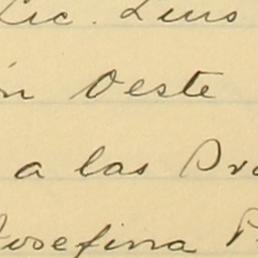 Lic. Luis
Oeste
a las
Josefina